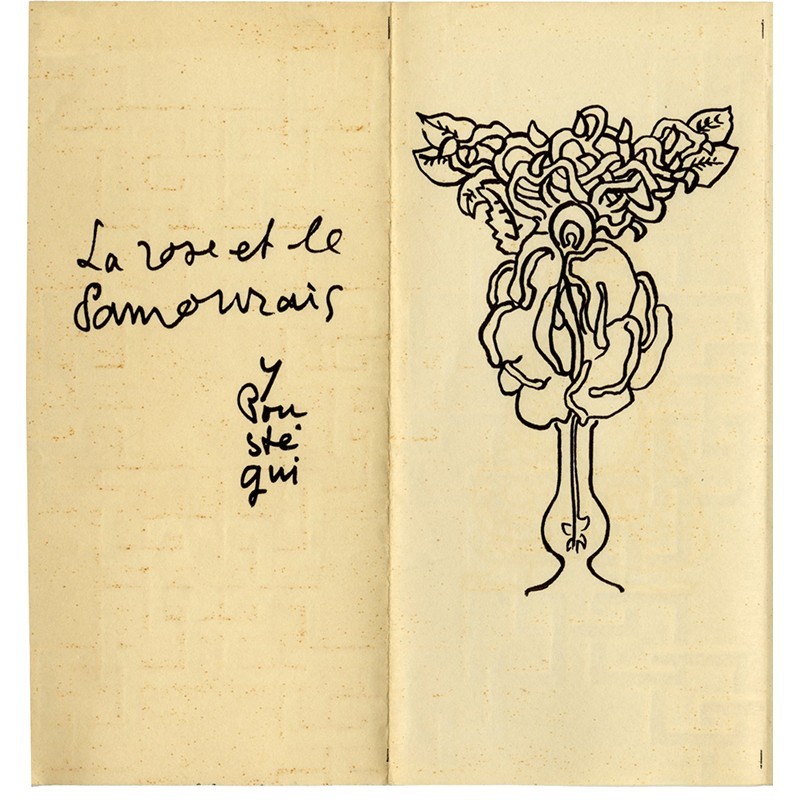 La rose et le
Samourais
y
Pou
sté
gui